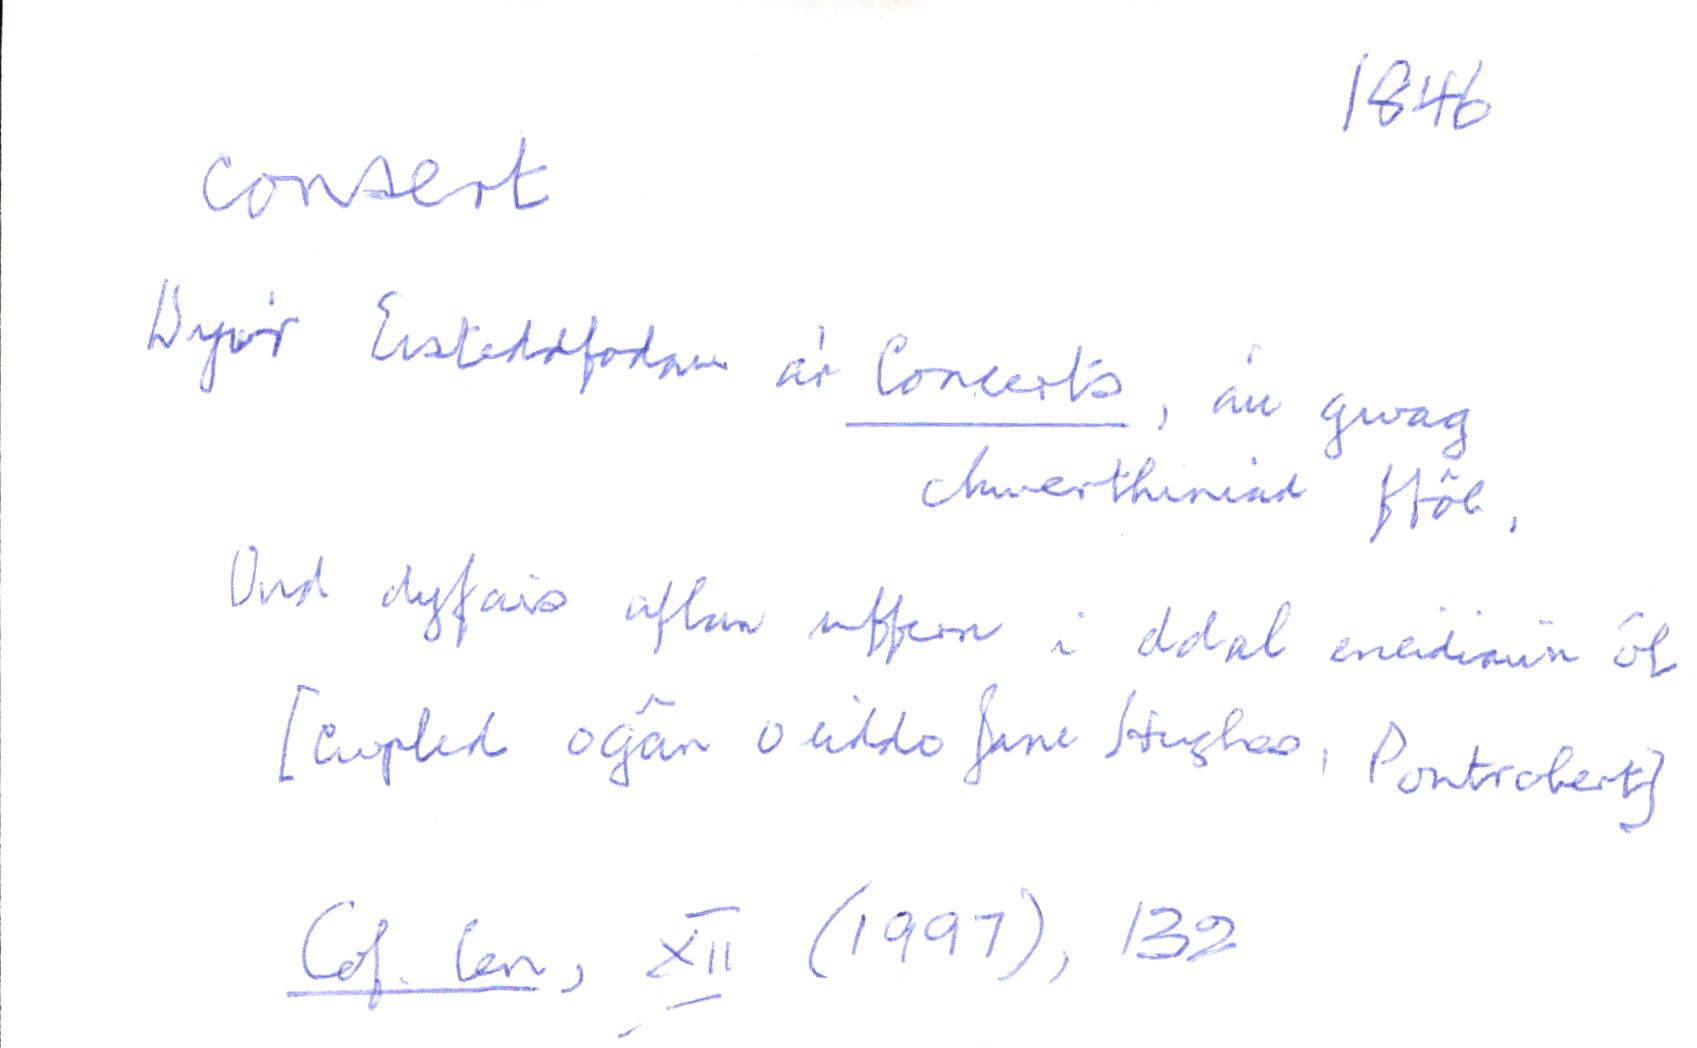 1846
consert
Dyw'r Eisteddfodau a'r Concerts, a'u gwag
chwerthiniad ffôl,
Ond dyfais aflan uffern i ddal eneidiau'n ôl
[cwpled ogân o eiddo Jane Hughes, Pontrobert]
Cof. Cen, XII (1997), 132